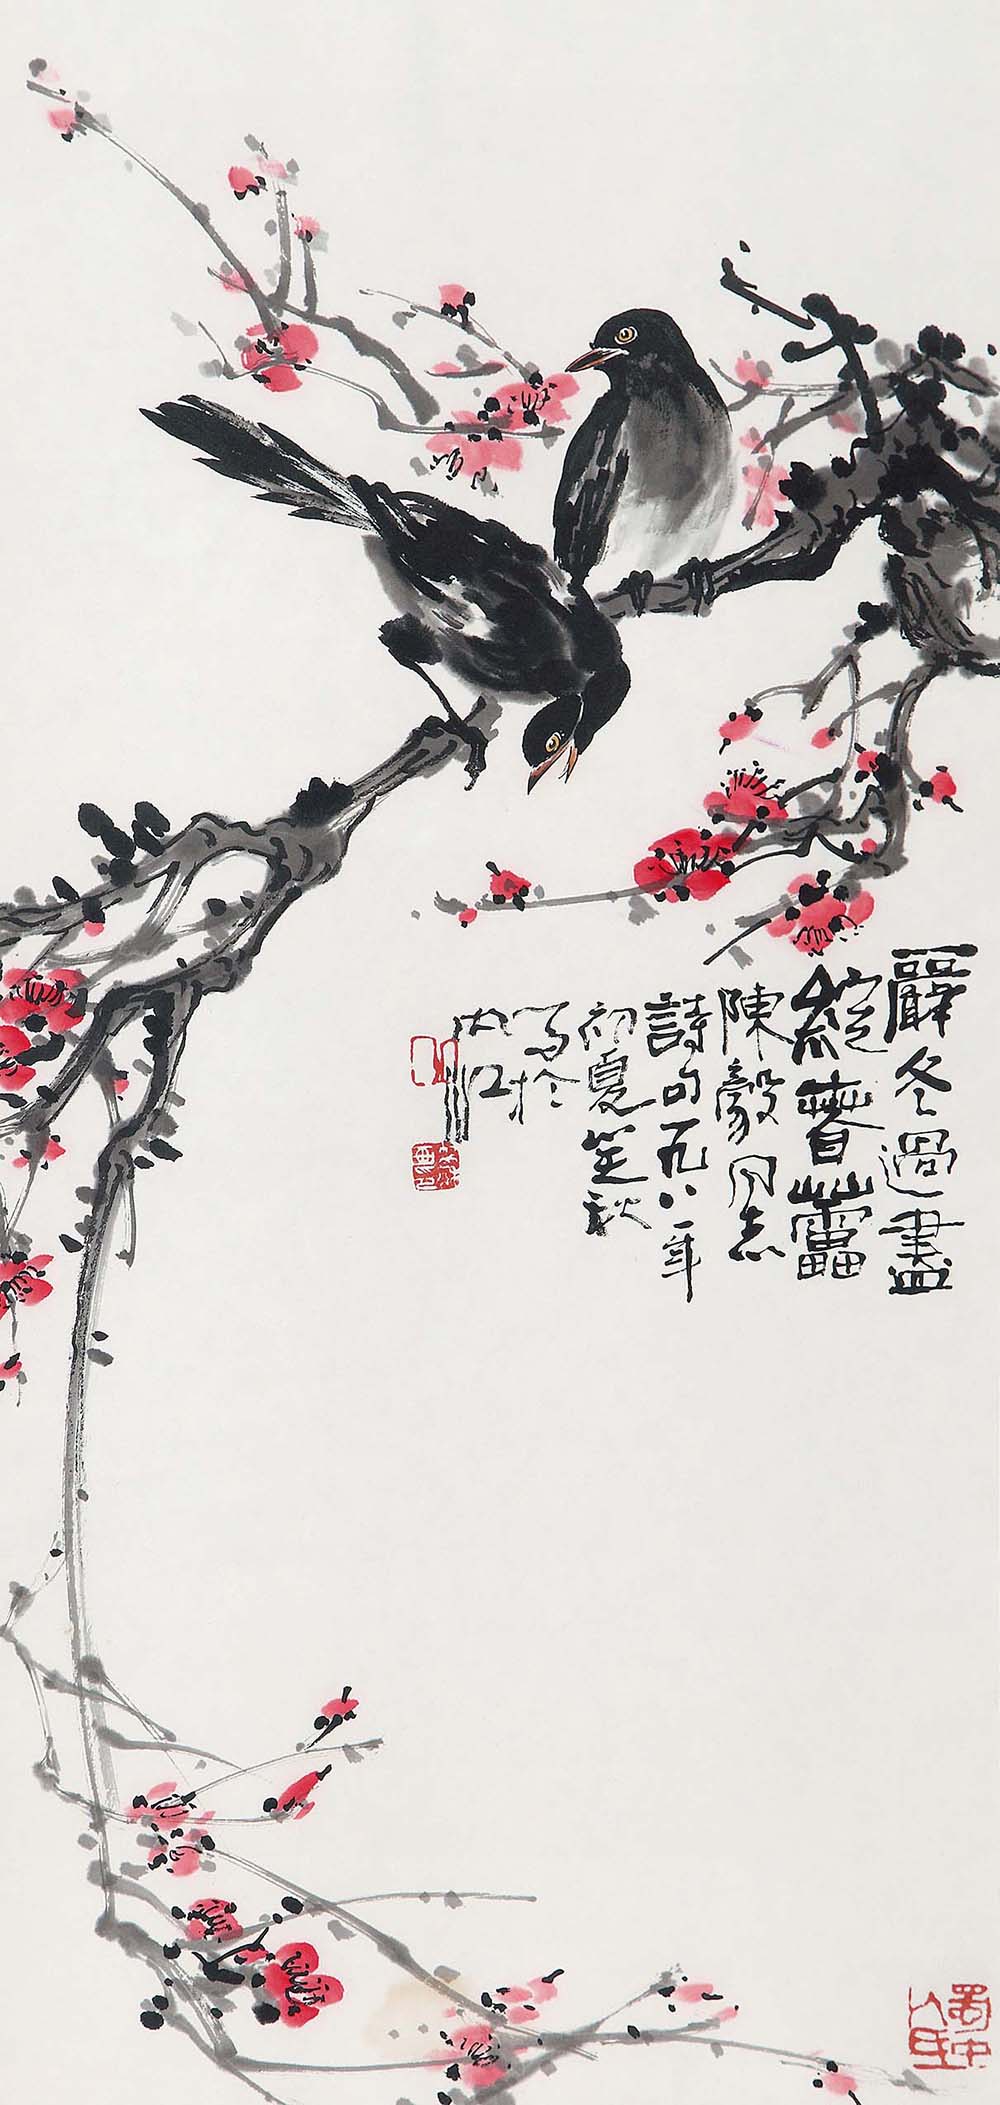 嚴冬過盡
綻春蕾
陳毅同志
詩句一九八一年
初夏笑秋
写於
內江
蜀中
人氏